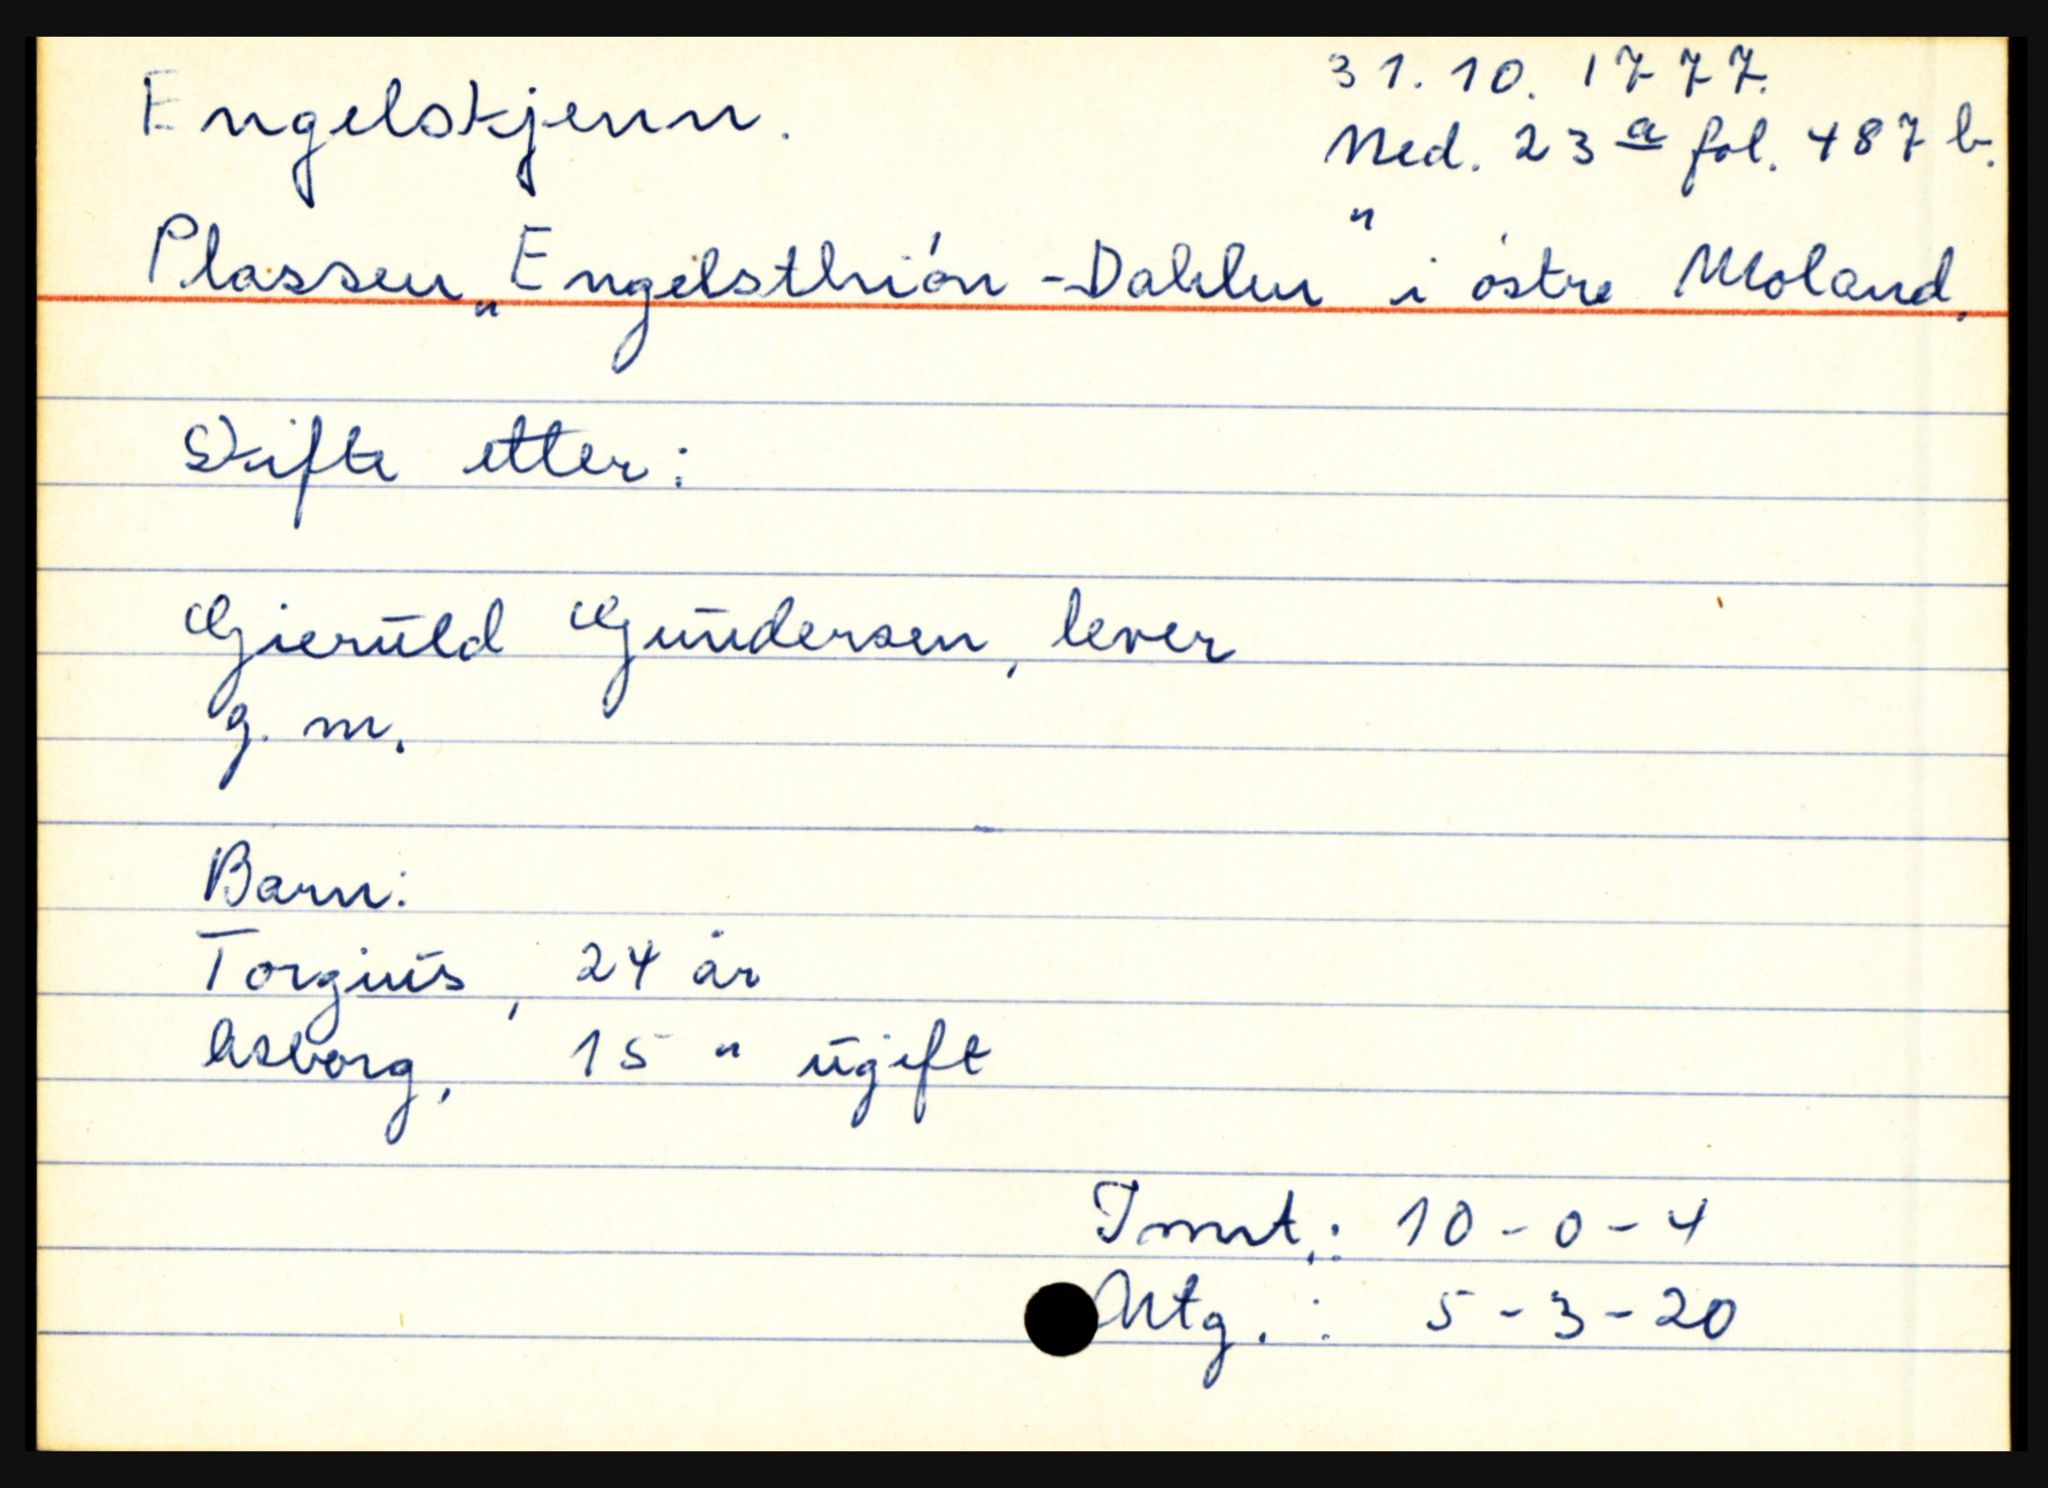 Engelskjenn.
31.10.1777.
Ned. 23a fol. 487 b.
Plassen „Engelsthiön-Dahlen" i östre Moland.
Skifte etter:
Gieruld Gundersen, lever
g. m.
Barn:
Torgius, 24 år
Asborg, 15 " ugift
Innt.: 10-0-4
Utg.: 5-3-20